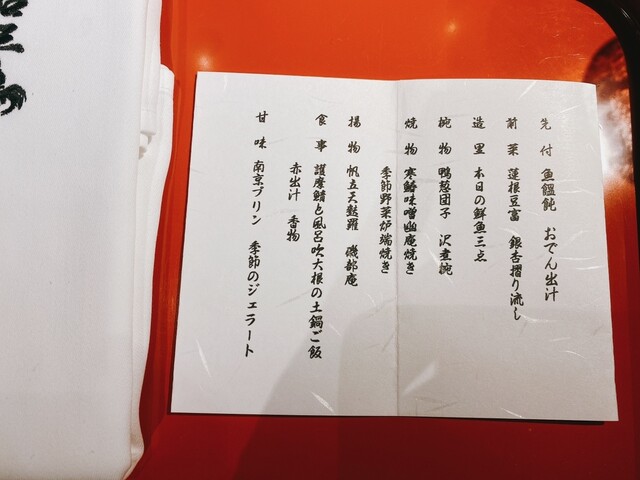 先付 魚饂飩 おでん出汁
前菜 蓮根豆富 銀杏摺り流し
造里 本日の鮮魚三点
椀物 鴨葱団子 沢煮椀
焼物 寒鰆味噌幽庵焼き
季節野菜炉端焼き
揚物 帆立天麩羅 磯部庵
食事 護摩鯖と風呂吹大根の土鍋ご飯
赤出汁 香物
甘味 南京プリン 季節のジェラート